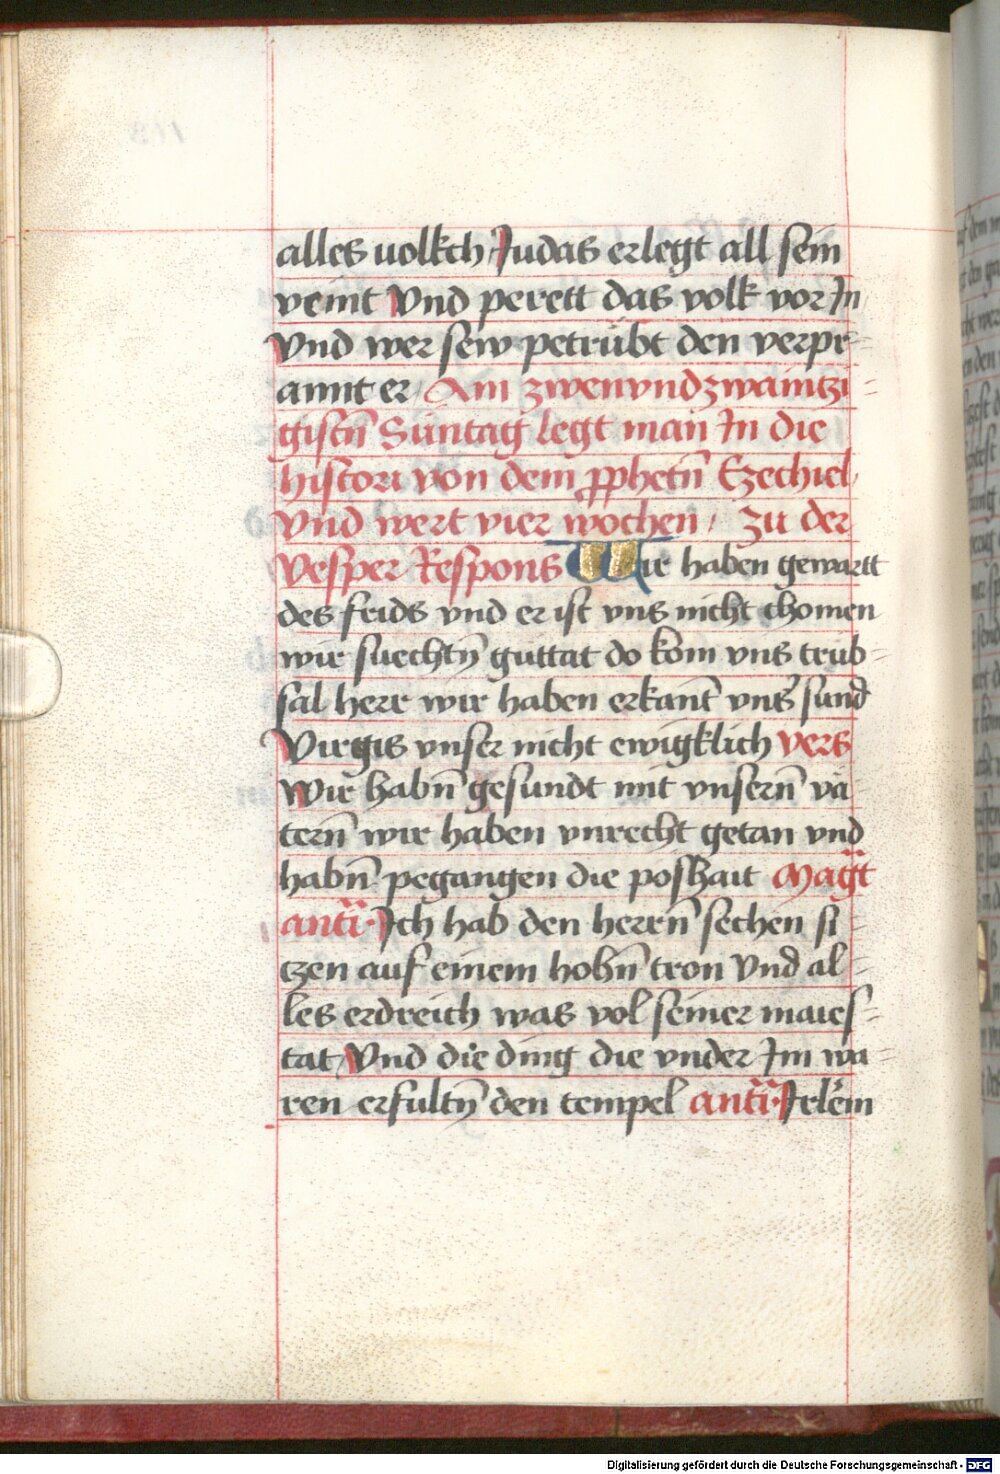 alles uolkch Judas erlegt all sein
veint Vnd perett das volk vor In
Vnd wer sew petrúbt den verpr=
annt er Am zwenvndzwaintzi=
gistn̄ Suntag legt man In die
histori von dem ꝓphetn̄ Ezechiel
Vnd wert vier wochen / Zu der
Vesper Respons Wir haben gewartt
des frids vnd er ist vns nicht chomen
wir suechtn̄ guttat do kom vns trúb=
sal herr wir haben erkant̄ vns̄ sund
Virgis vnser nicht ewigklich vers
Wir habn̄ gesundt mit vnsern̄ vä
tern̄ wir haben vnrecht getan vnd
habn̄ pegangen die poshait Magt̄
antī Ich hab den herrn̄ sechen si=
czen auf einem hohn̄ tron Vnd al=
les erdreich was vol seiner maies=
tat Vnd die ding die vnder Im wa=
ren erfultn̄ den tempel antī Jerlēm
Digitalisierung gefördert durch die Deutsche Forschungsgemeinschaft - DFG